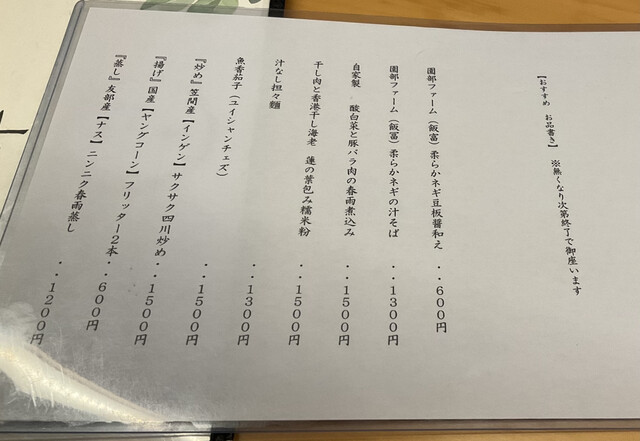 【おすすめ　お品書き】　※無くなり次第終了で御座います
園部ファーム（飯富）柔らかネギ豆板醤和え　・・６００円
園部ファーム（飯冨）柔らかネギの汁そば　・・１３００円
自家製　酸白菜と豚バラ肉の春雨煮込み　・・１５００円
干し肉と香港干し海老　蓮の葉包み糯米粉　・・１５００円
汁なし担々麺　・・１３００円
魚香茄子（ユイシャンチェズ）　・・１５００円
『炒め』笠間産【インゲン】サクサク四川炒め　・・１５００円
『揚げ』国産【ヤングコーン】フリッター２本　・・６００円
『蒸し』友部産【ナス】ニンニク春雨蒸し　・・１２００円